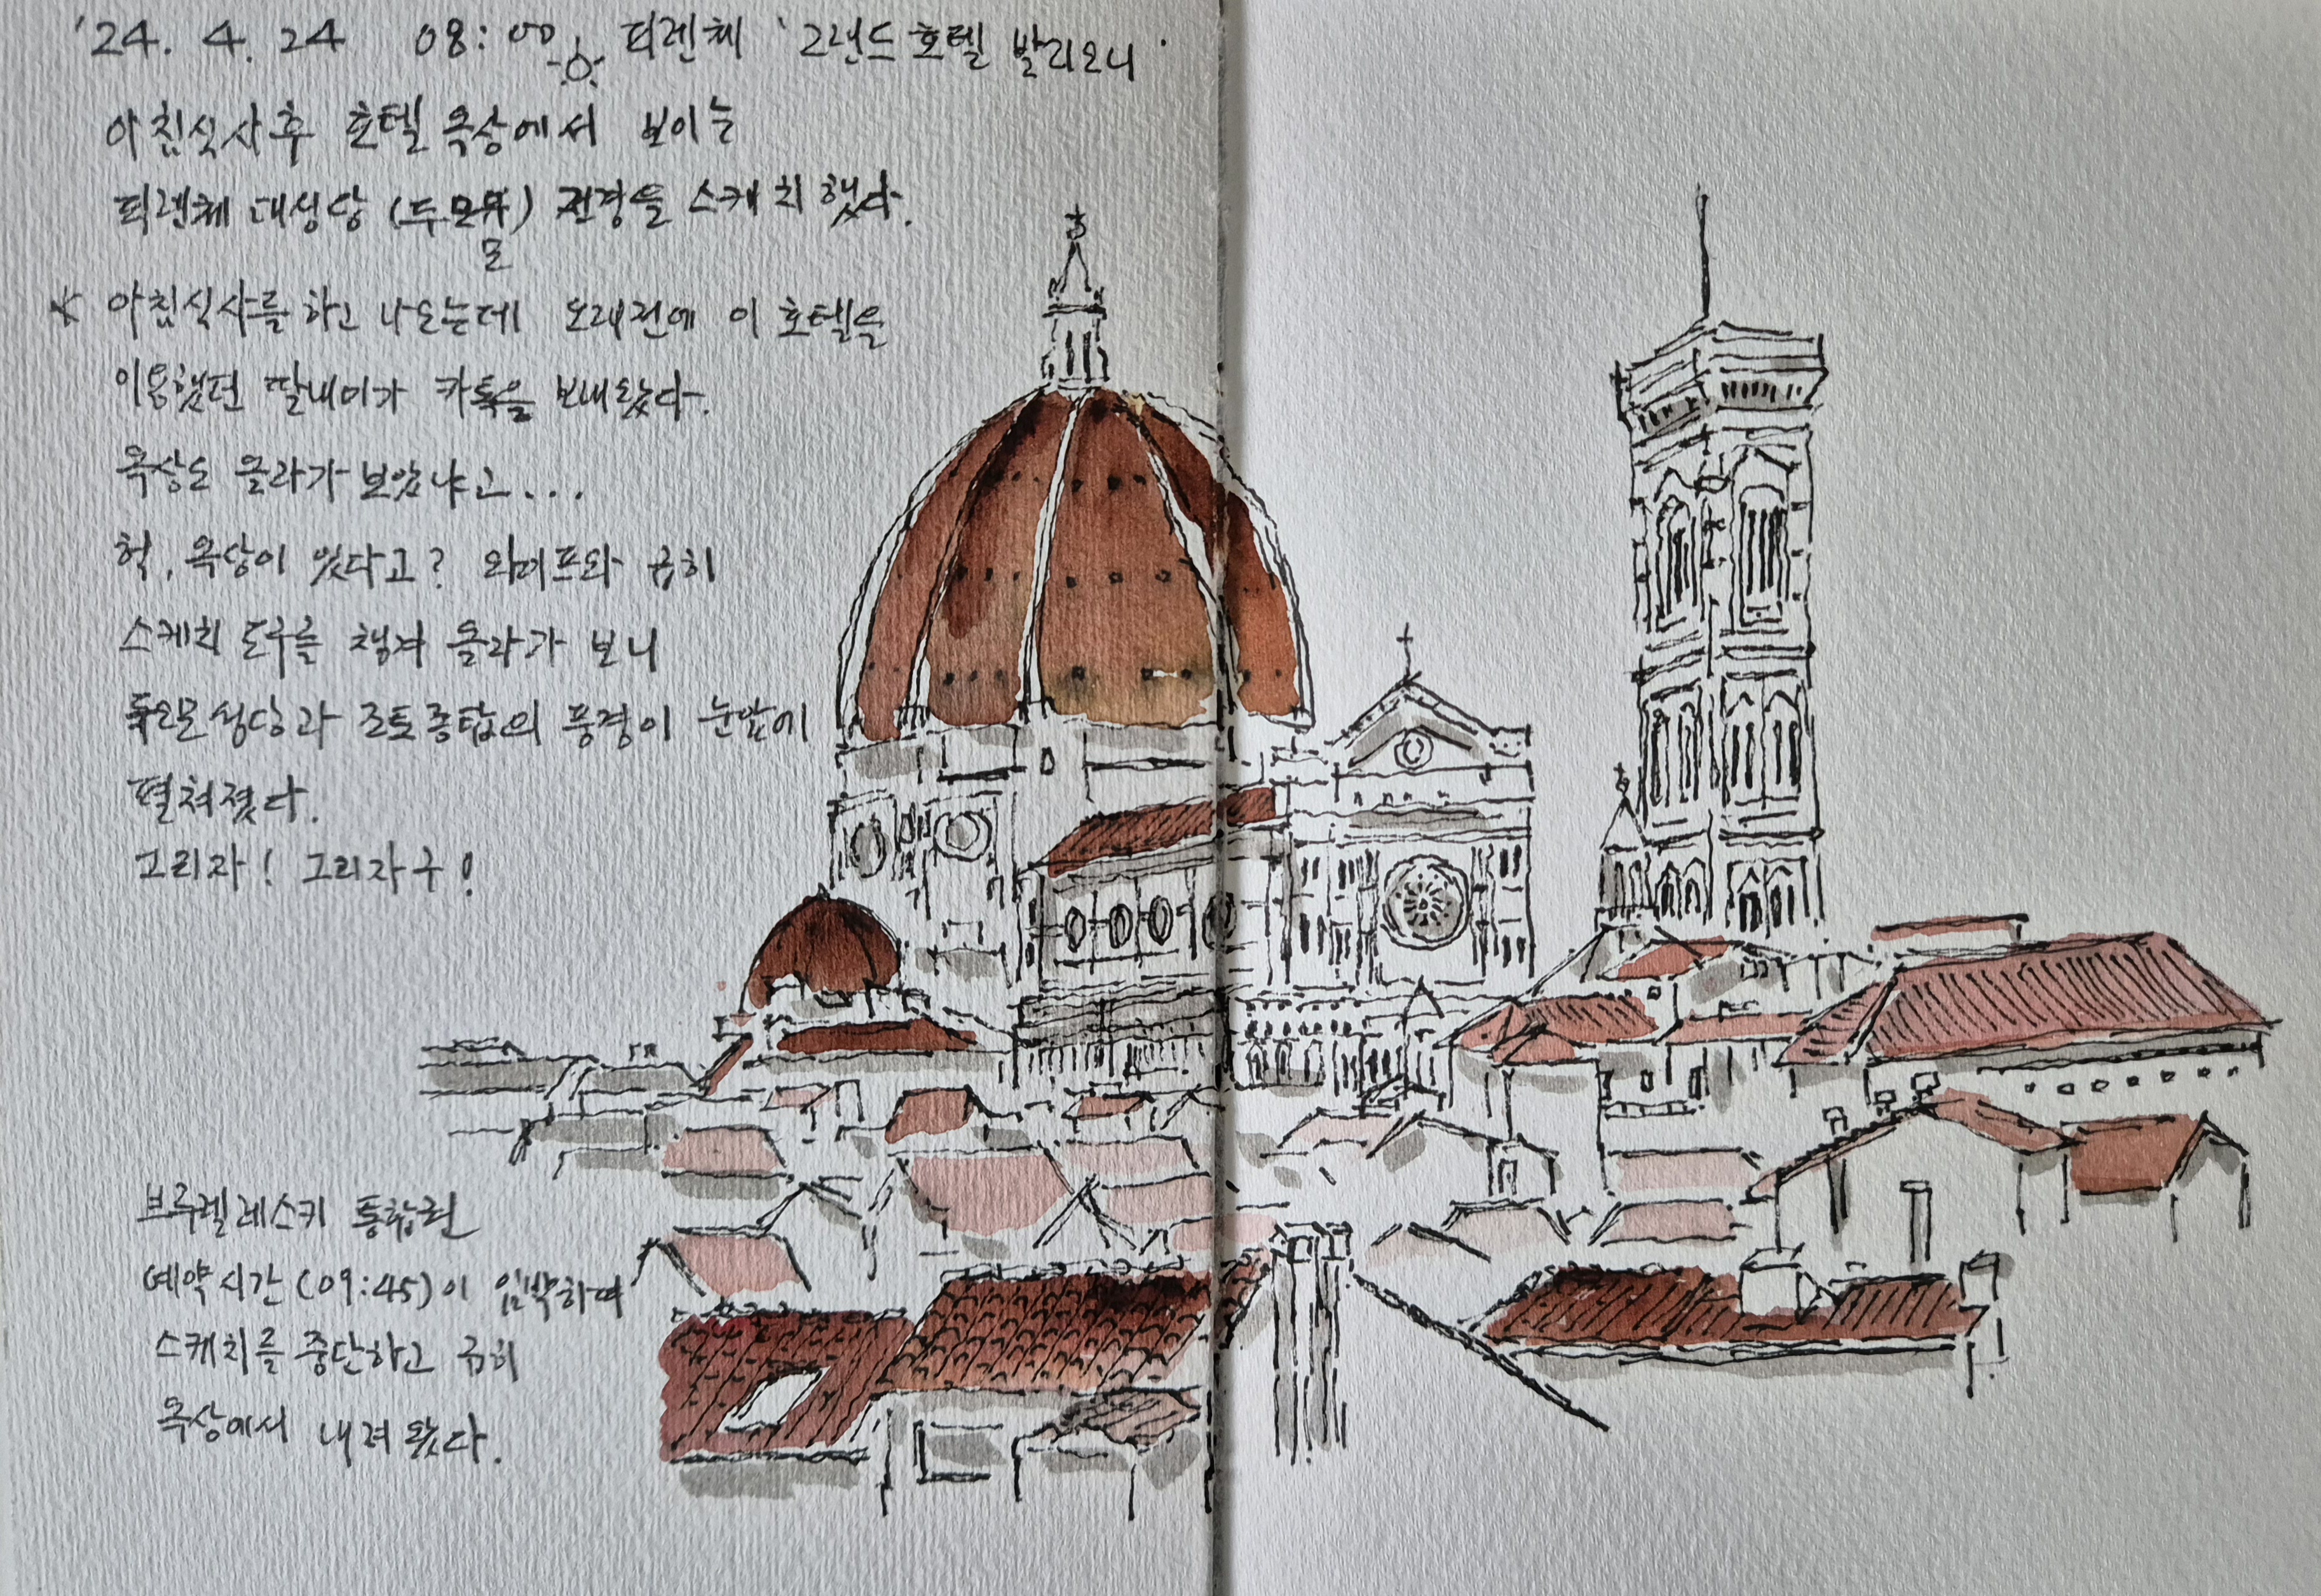 '24. 4. 24 08:00 피렌체 '그랜드호텔 발리오니'
아침식사후 호텔 옥상에서 보이는
피렌체 대성당 (두오모) 전경을 스케치 했다.
* 아침식사를 하고 나오는데 오래전에 이 호텔을
이용했던 딸내미가 카톡을 보내왔다.
옥상도 올라가 보았냐고...
헉, 옥상이 있다고? 와이프와 급히
스케치 도구를 챙겨 올라가 보니
두오모 성당과 조토종탑의 풍경이 눈앞에
펼쳐졌다.
그리자! 그리자구!
브루넬레스키 통합권
예약시간(09:45)이 임박하여
스케치를 중단하고 급히
옥상에서 내려왔다.